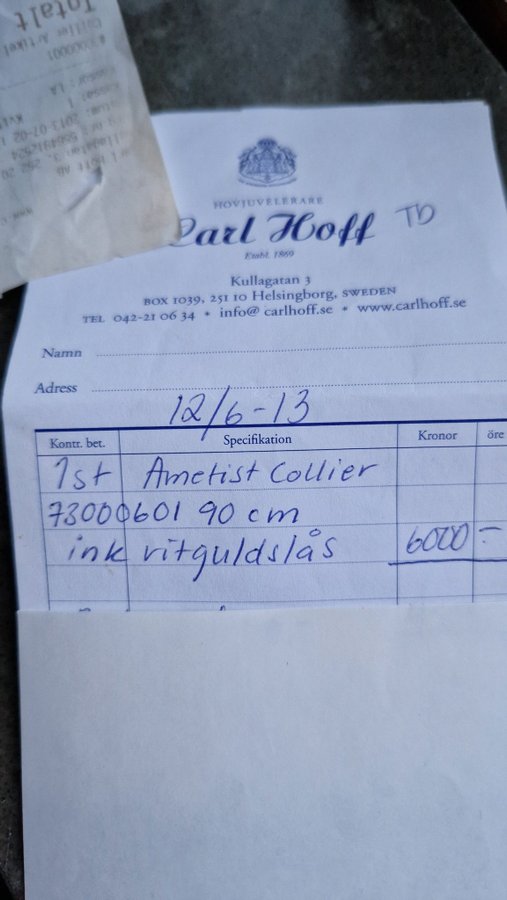 Totalt
Collier Artikel
HOVJUVELERARE
Carl Hoff TD
Etabl. 1869
Kullagatan 3
BOX 1039, 251 10 Helsingborg, SWEDEN
TEL 042-21 06 34 • info@carlhoff.se • www.carlhoff.se
Namn
Adress
12/6-13
Kontr. bet. Specifikation Kronor öre
1st Ametist Collier
73000601 90 cm
ink vitguldslås 6000 -